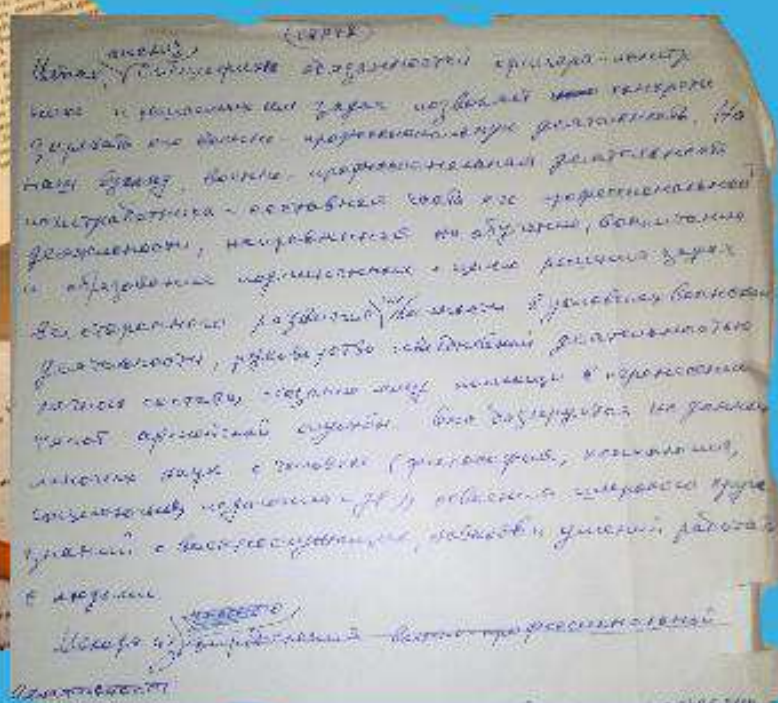 анализ
Итак, специфика обязанностей офицера-
и решаемых им задач позволяет конкрети
зировать его военно-профессиональную деятельность. На
наш взгляд, военно-профессиональная деятельность
политработника - составная часть его профессиональной
деятельности, направленной на обучение, воспитание
и образование подчиненных с целью решения задач
всестороннего развития личности в условиях воинской
деятельности, руководство деятельностью
личного состава, оказание ему помощи в перенесении
тягот армейской службы. Она базируется на данных
многих наук о человеке (философия, психология,
социология, педагогика и др.), освоении широкого круга
знаний о военнослужащих, навыков и умений работы
с людьми.
Исходя из военно-профессиональной
деятельности